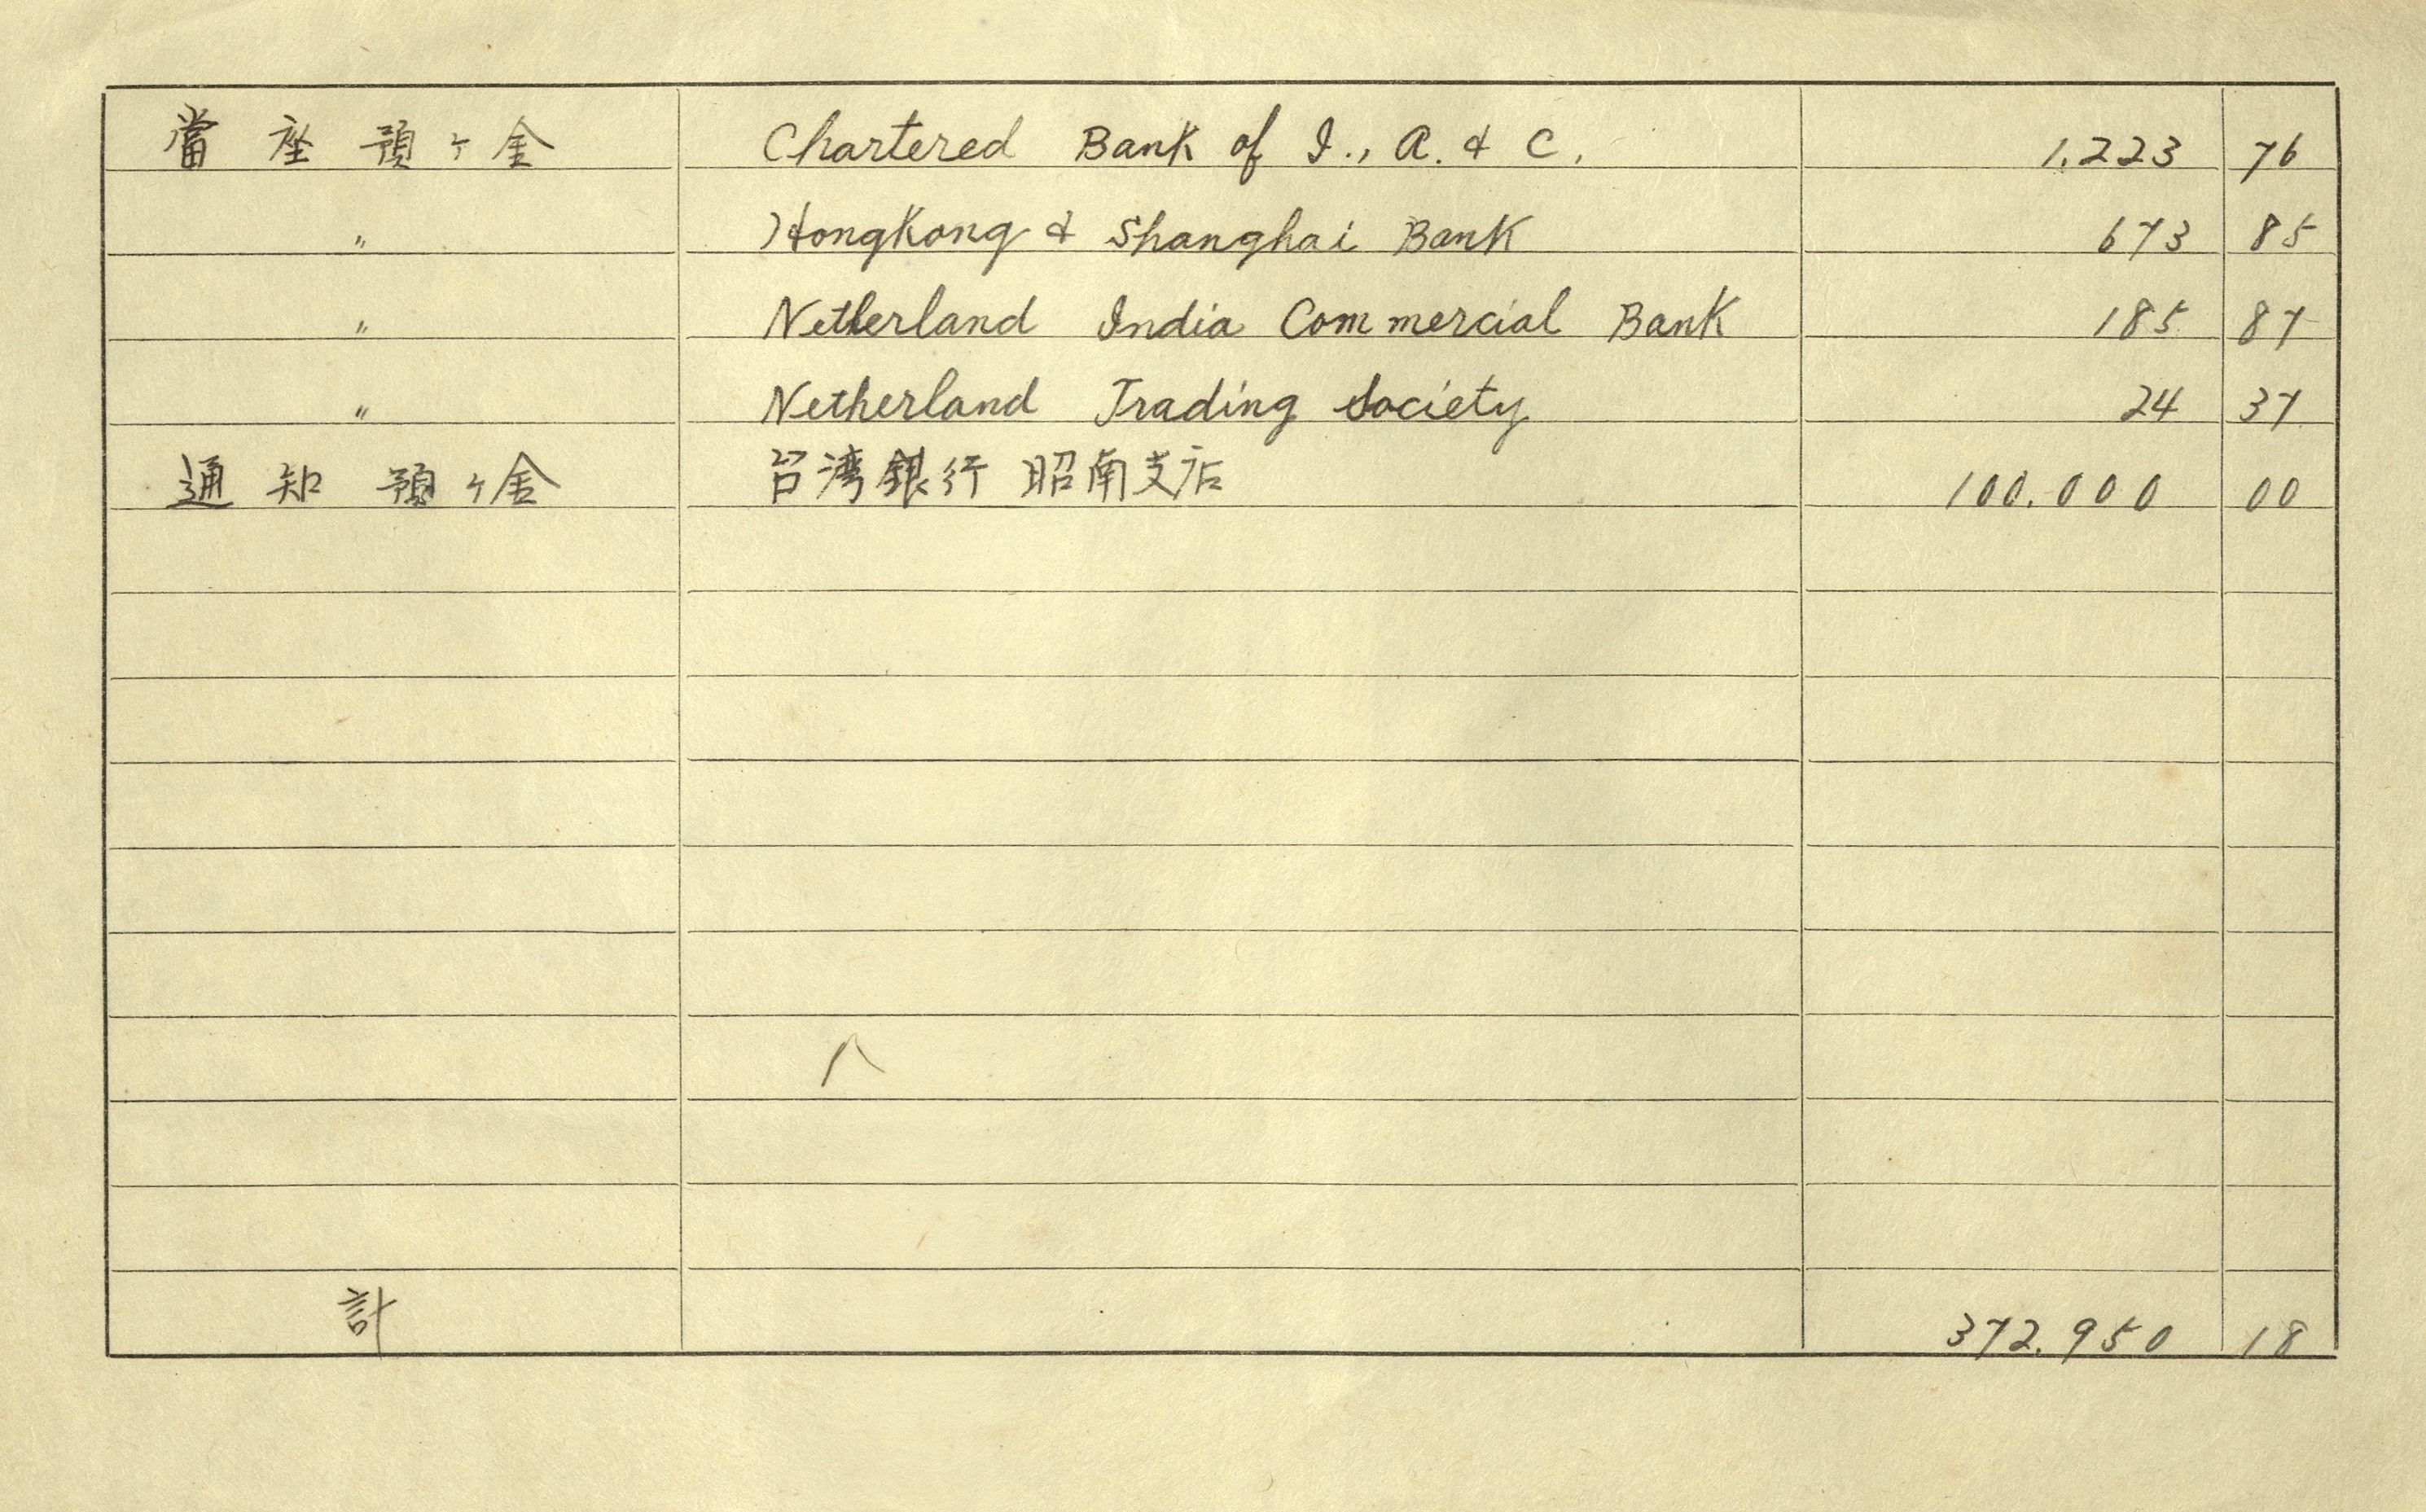 當座預ヶ金 Chartered Bank of I., A. & C. 1,223 76
〃 Hongkong & Shanghai Bank 673 85
〃 Netherland India Commercial Bank 185 87
〃 Netherland Trading Society 24 37
通知預ヶ金 台湾銀行 昭南支店 100.000 00
計 372.950 18